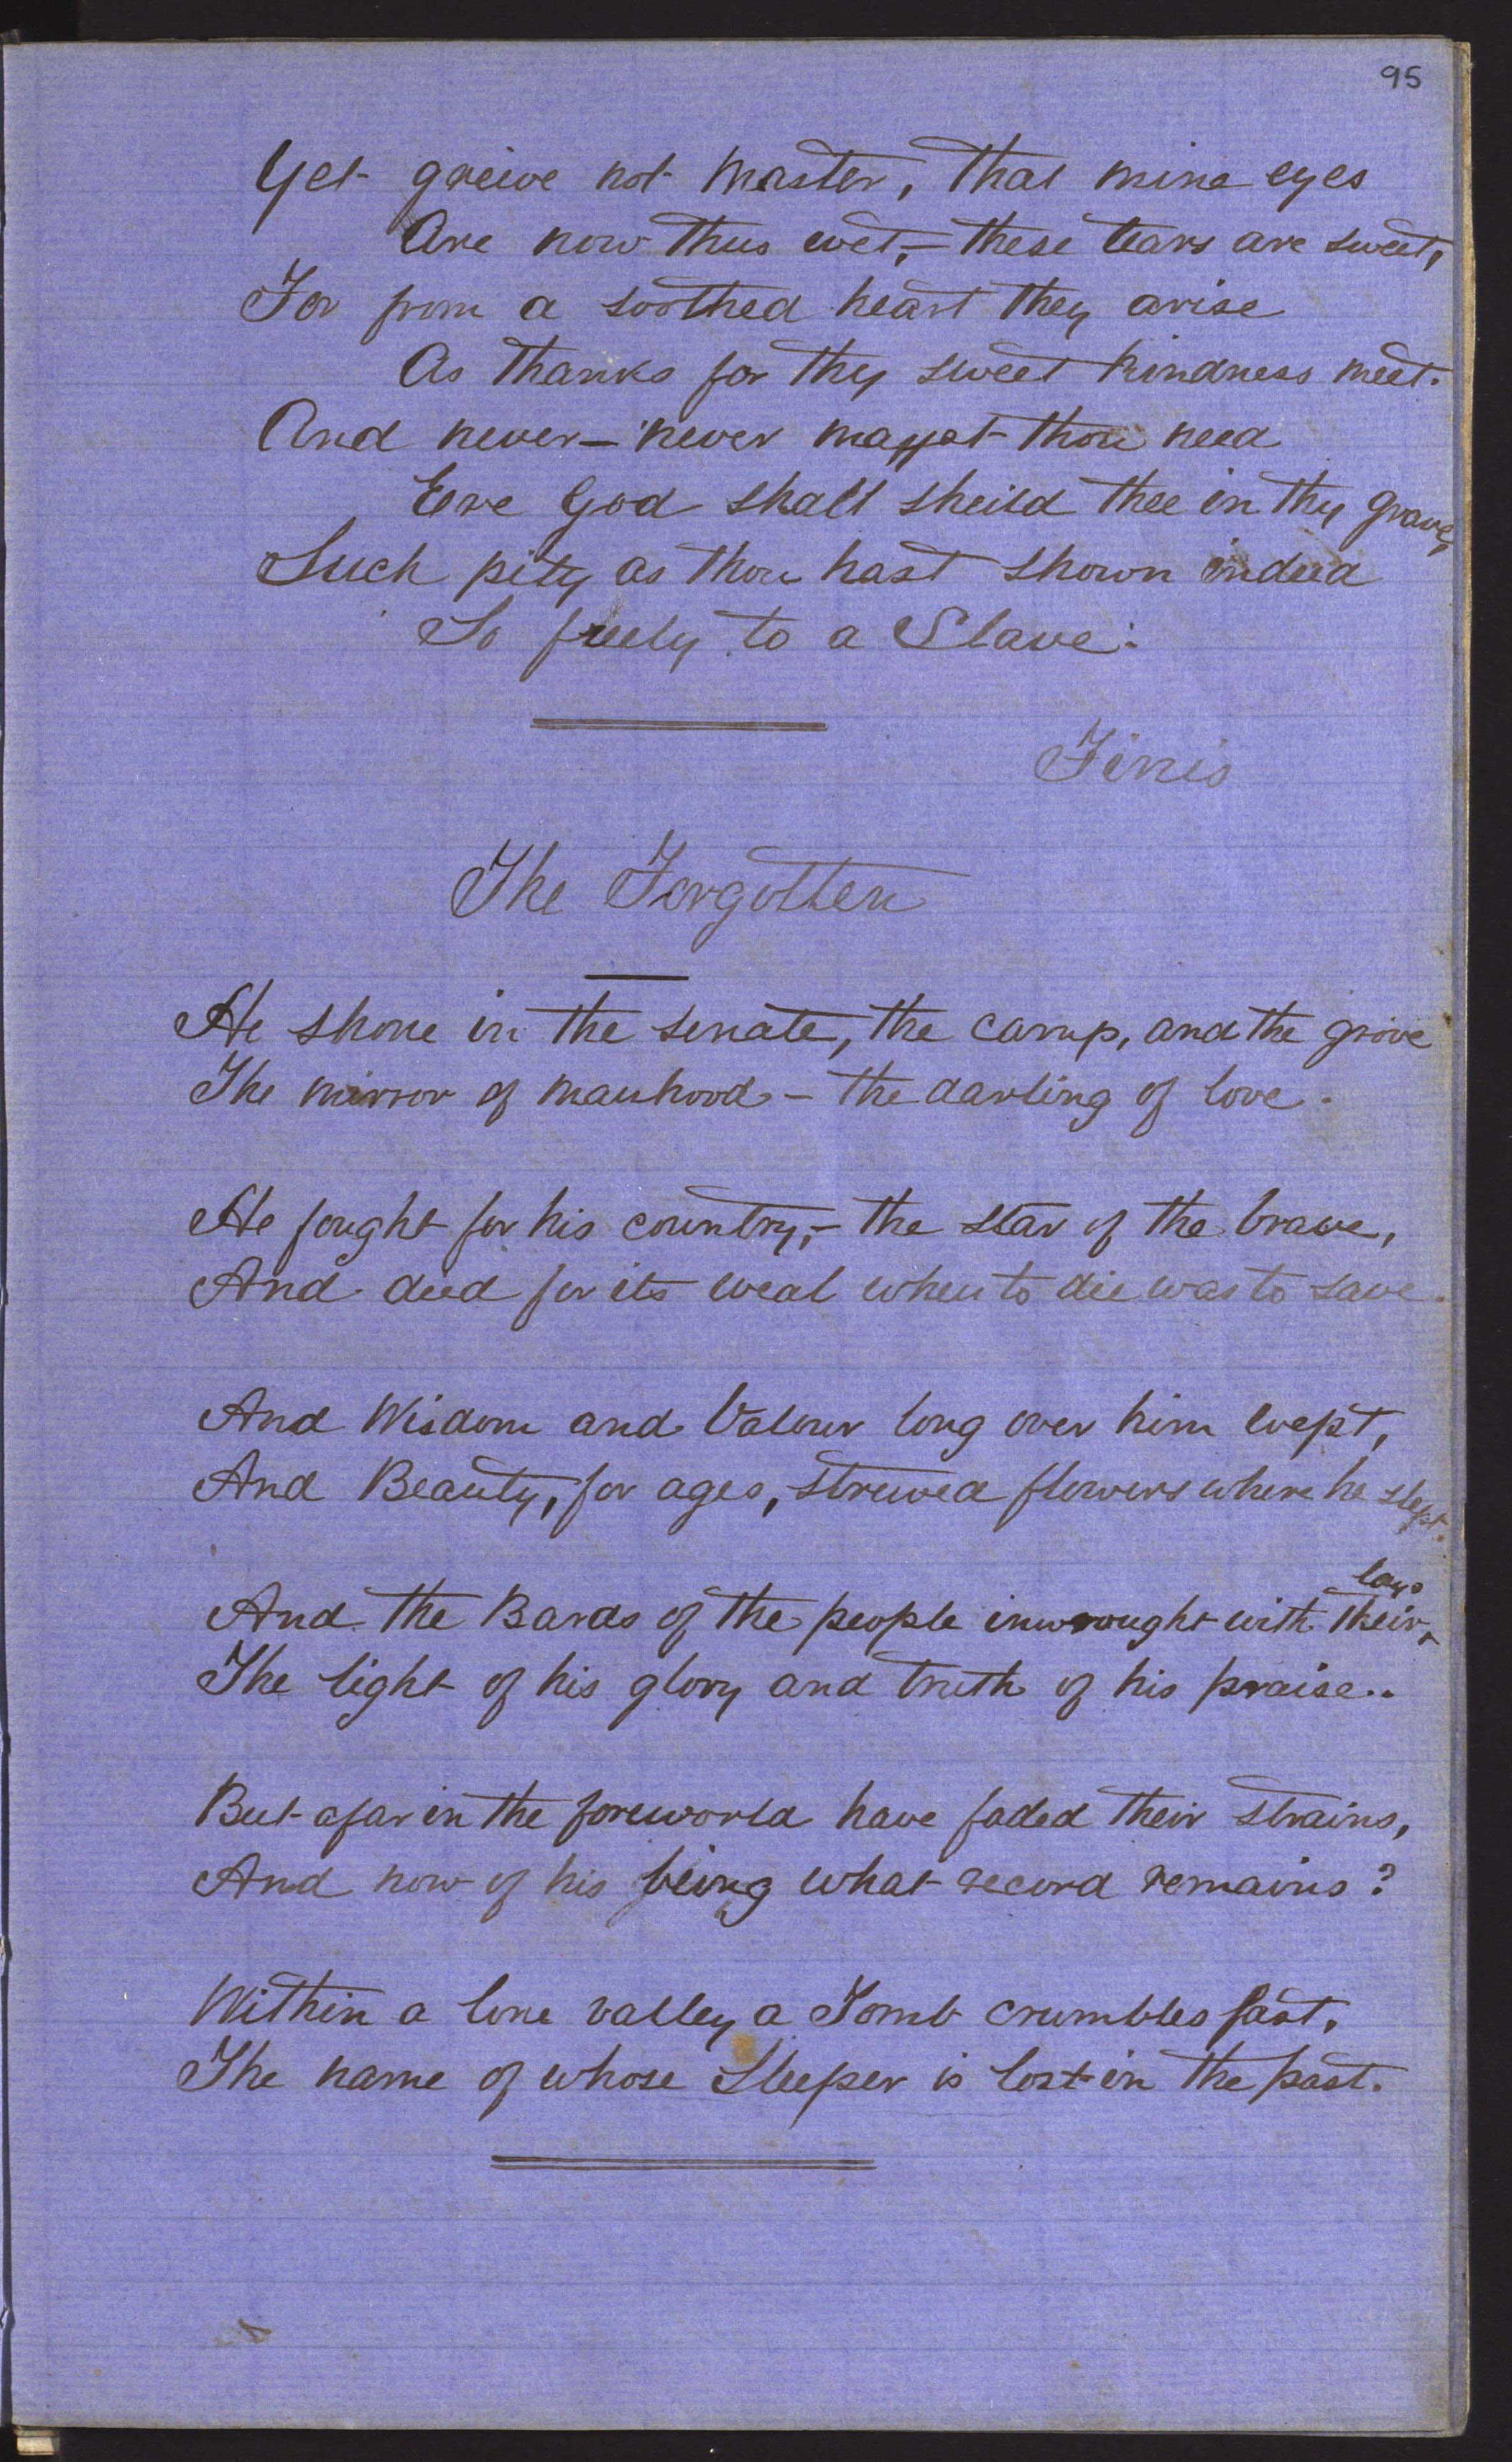 95
Yet greive not Master, that mine eyes
Are now thus wet,— these tears are sweet,
For from a soothed heart they arise
As thanks for thy sweet kindness meet.
And never— never mayst thou need
Ere God shall sheild thee in thy grave,
Such pity as thou hast shown indeed
So freely to a Slave.
Finis
The Forgotten
He shone in the senate, the camp, and the grove
The mirror of manhood — the darling of love.
He fought for his country,— the star of the brave,
And died for its weal when to die was to save.
And Wisdom and Valour long over him wept,
And Beauty, for ages, strewed flowers where he slept.
And the Bards of the people inwrought with their lays
The light of his glory and truth of his praise..
But afar in the foreworld have faded their strains,
And now of his being what record remains?
Within a lone valley a Tomb crumbles fast,
The name of whose Sleeper is lost in the past.